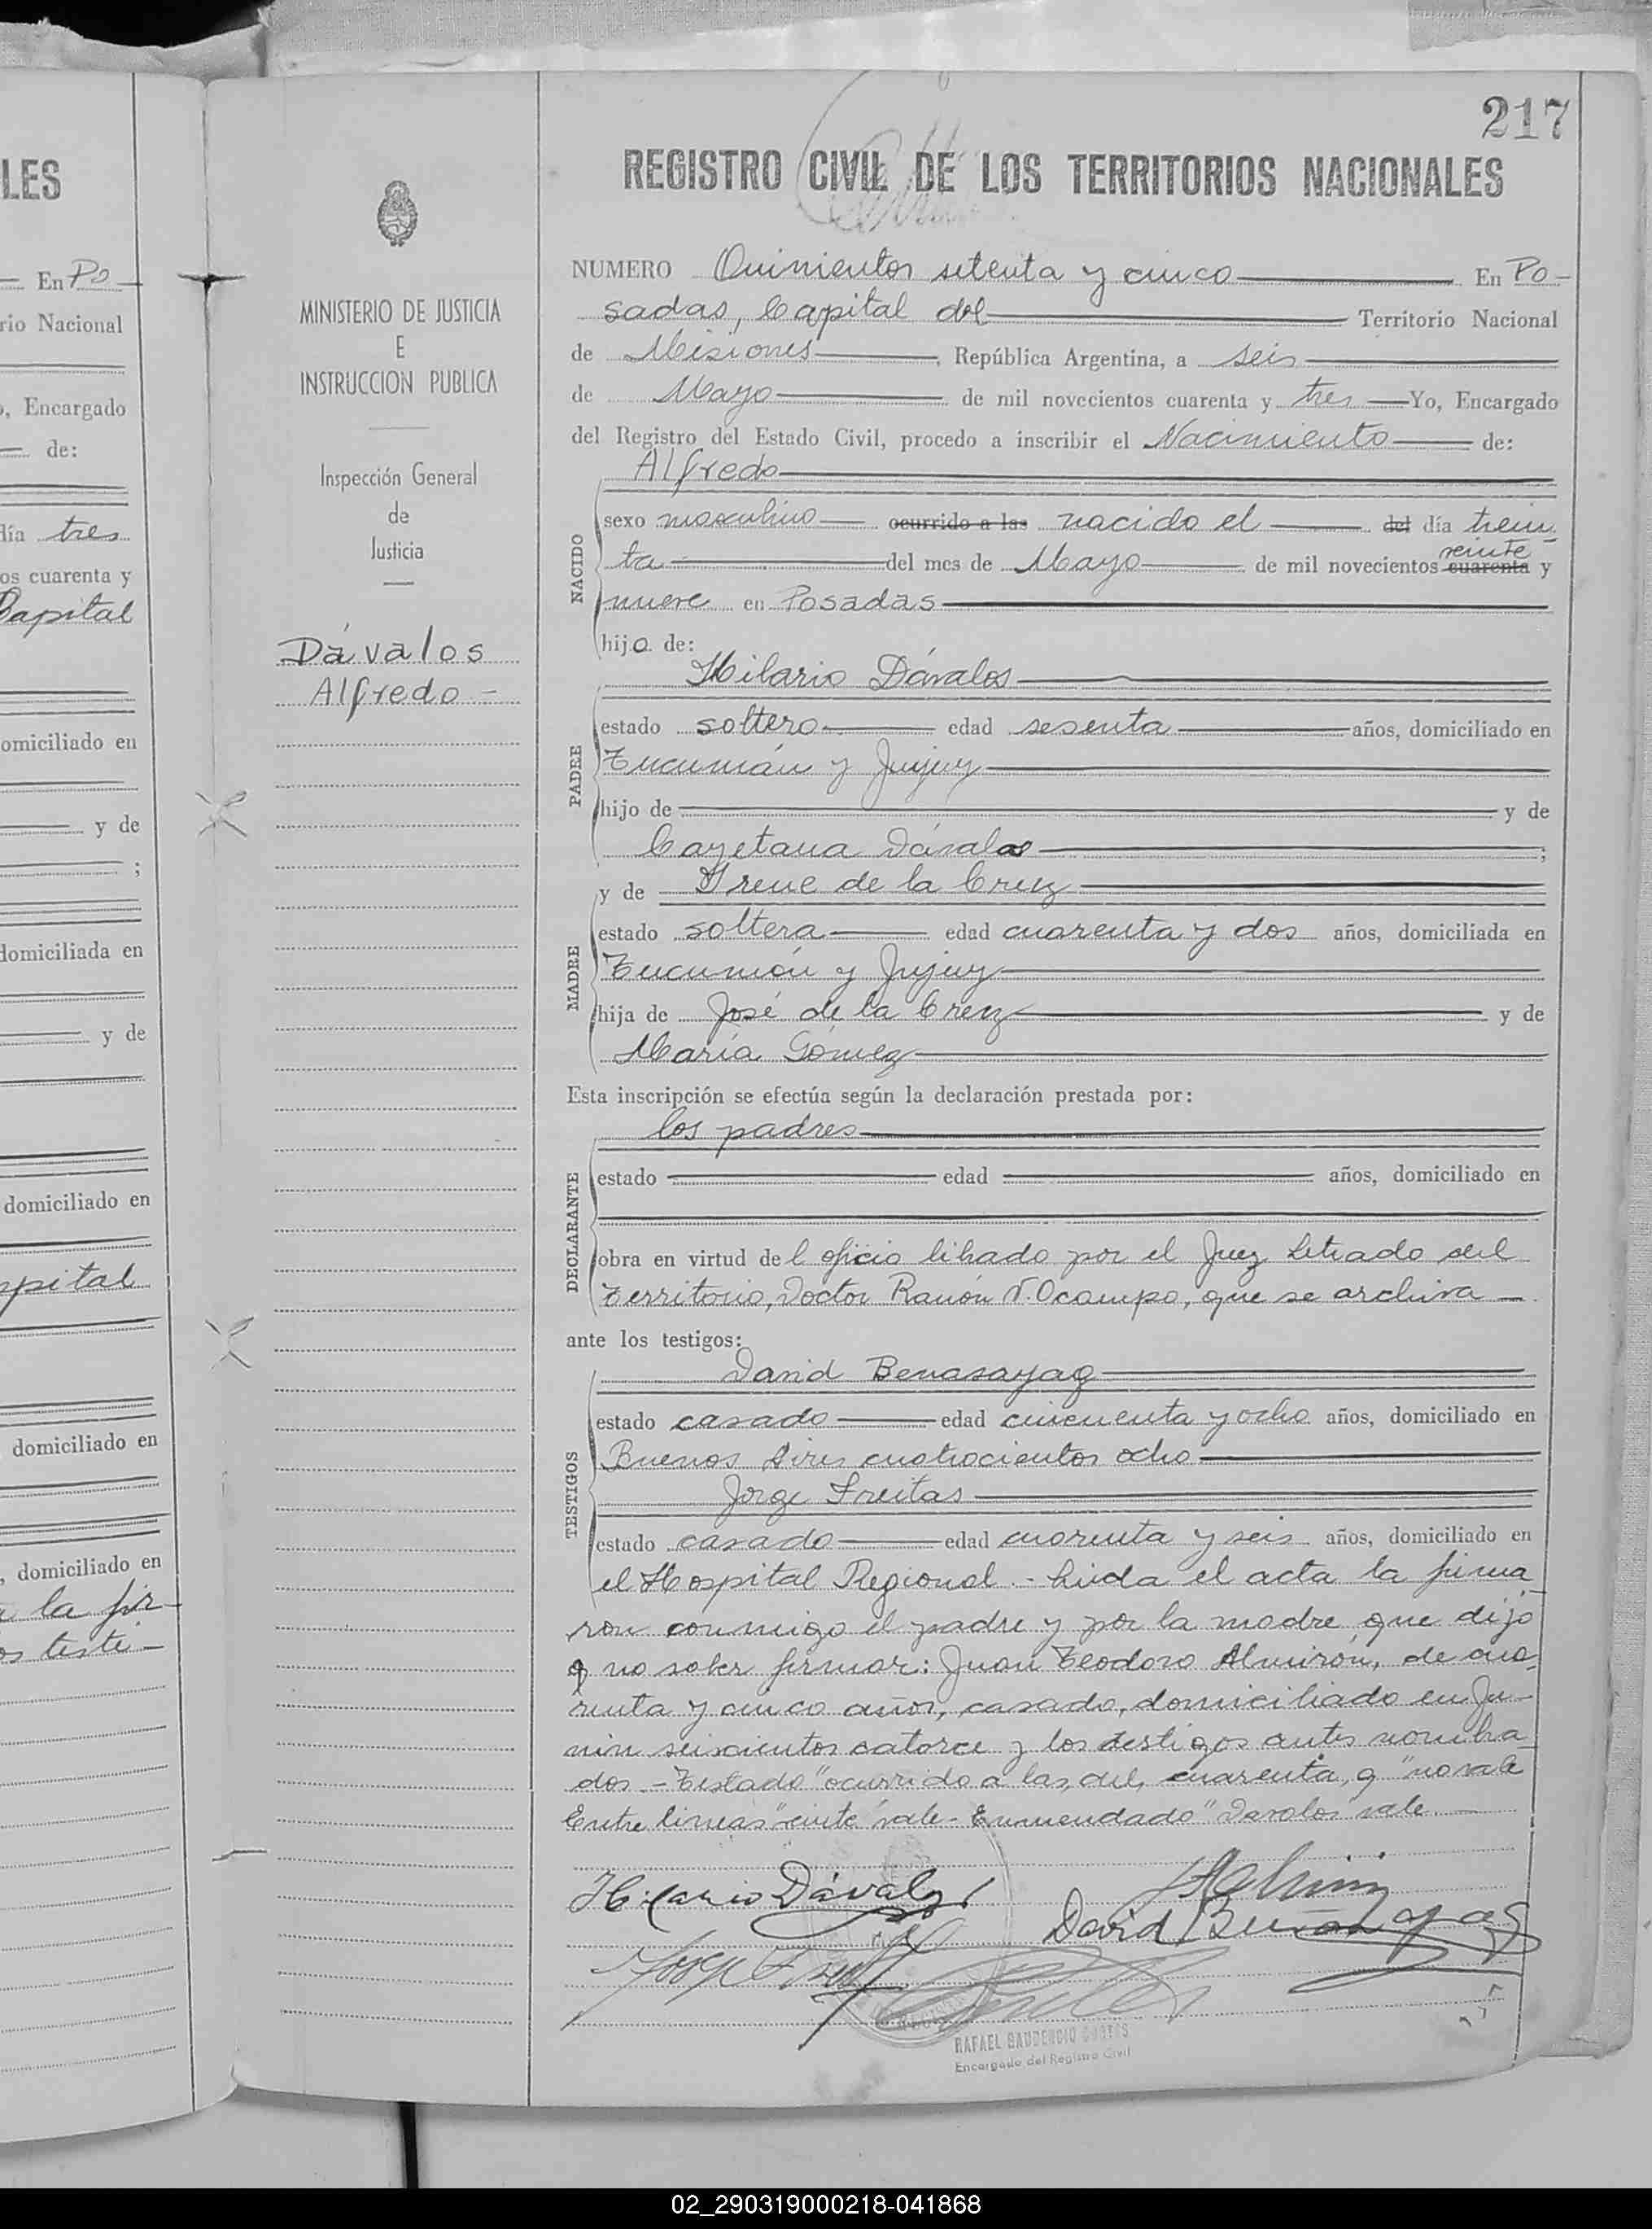 LES
En Po
rio Nacional
o, Encargado
de:
día tres
os cuarenta y
Capital
omiciliado en
y de
;
domiciliada en
y de
domiciliado en
spital
domiciliado en
, domiciliado en
a la fir-
os testi-
MINISTERIO DE JUSTICIA
E
INSTRUCCION PUBLICA
Inspección General
de
Justicia
Dávalos
Alfredo-
217
REGISTRO CIVIL DE LOS TERRITORIOS NACIONALES
NUMERO Quinientos setenta y cinco En Po-
sadas, Capital del Territorio Nacional
de Misiones, República Argentina, a seis
de Mayo de mil novecientos cuarenta y tres Yo, Encargado
del Registro del Estado Civil, procedo a inscribir el Nacimiento de:
Alfredo
NACIDO
sexo masculino ocurrido a las nacido el del día trein-
veinte
ta del mes de Mayo de mil novecientos cuarenta y
nueve en Posadas
hijo de:
Hilario Dávalos
PADRE
estado soltero edad sesenta años, domiciliado en
Tucumán y Jujuy
hijo de y de
Cayetana Dávalos;
y de Irene de la Cruz
MADRE
estado soltera edad cuarenta y dos años, domiciliada en
Tucumán y Jujuy
hija de José de la Cruz y de
María Gómez
Esta inscripción se efectúa según la declaración prestada por:
los padres
DECLARANTE
estado edad años, domiciliado en
obra en virtud del oficio librado por el Juez Letrado del
Territorio, Doctor Ramón N. Ocampo, que se archiva -
ante los testigos:
David Benasayag
TESTIGOS
estado casado edad cincuenta y ocho años, domiciliado en
Buenos Aires cuatrocientos ocho
Jorge Freitas
estado casado edad cuarenta y seis años, domiciliado en
el Hospital Regional.- Leída el acta la firma-
ron conmigo el padre y por la madre que dijo
q no saber firmar: Juan Teodoro Almirón, de cua-
renta y cinco años, casado, domiciliado en Ju-
nin seiscientos catorce y los testigos antes nombra-
dos.-Testado "ocurrido a las, del, cuarenta, q" no vale
Entre lineas "veinte" vale- Enmendado "Davalos" vale.
Hilario Dávalos
David Benasayag
Jorge Freitas
RAFAEL GAUDENCIO
Encargado del Registro Civil
02_290319000218-041868